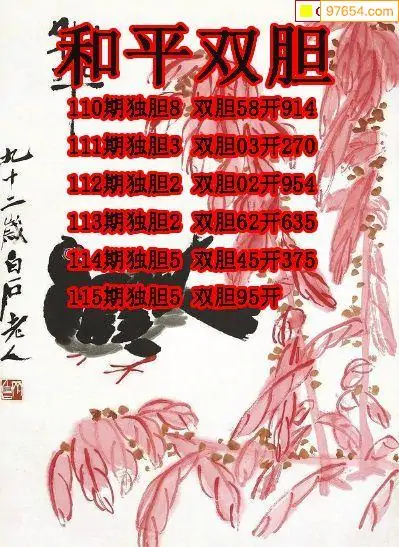 97654.com
和平双胆
110期独胆8 双胆58开914
111期独胆3 双胆03开270
112期独胆2 双胆02开954
113期独胆2 双胆62开635
114期独胆5 双胆45开375
115期独胆5 双胆95开
九十二岁白石老人